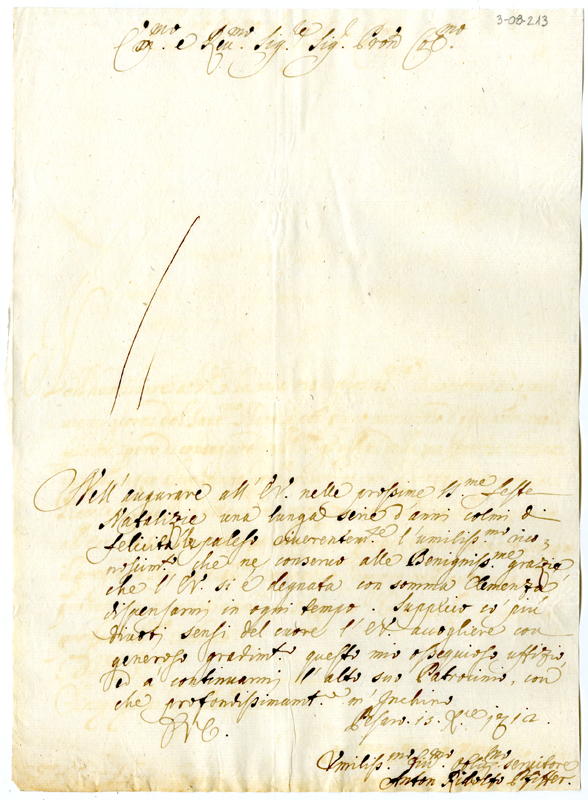 3-08-213
Em.mo e Reu.mo Sig.re Sig.r Pron Col.mo
Nell'augurare all'EV. nelle prossime SS.me feste
Natalizie una lunga serie d'anni colmi di
felicità le paleso riuerentem.te l'umiliss.mo rico=
noscim.to che ne conseruo alle Benigniss.me grazie
che l'EV. si è degnata con somma Clemenza
dispensarmi in ogni tempo. Supplico co più
diuoti sensi del cuore l'EV. accogliere con
generoso gradim.to questo mio ossequioso uffizio,
ed a continuarmi l'alto suo Patrocinio, con
che profondissimam.te m'Inchino
Pesaro 15 Xbre
Vmiliss.mo Diu.mo Obblig.mo seruitore
Anton Ridolfo Pfiffer.